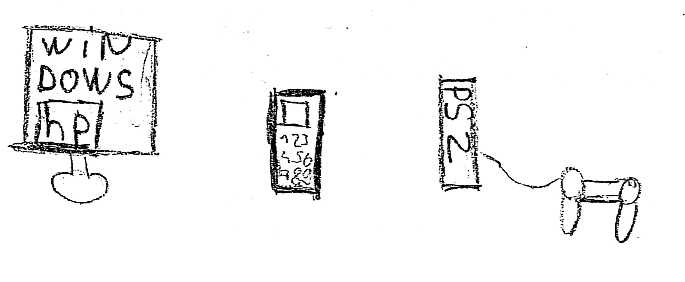 WIN
DOWS
hp
123
456
789
PS2